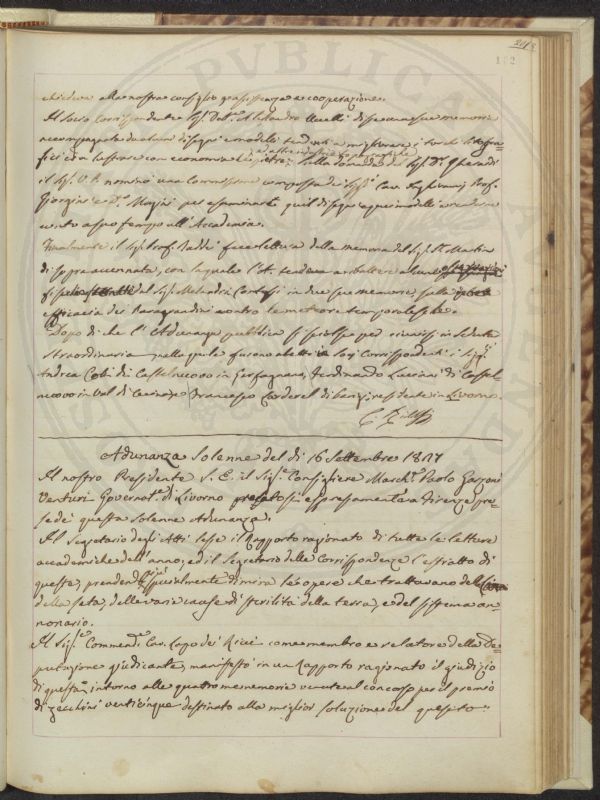 chiedere alla nostra consiglio, assistenza e cooperazione.
Il Socio Corrispondente Sig. Dott. Alessandro Uccelli di sue memorie
accompagnate da alcuni disegni e modelli tendenti a migliorare i torchi litogra
fici ed a lustrare con economia le pietre; sulla domanda del Sig. Dr.
il Sig. V. P. nominò una Commissione composta dei Sigg. Cav. Inghirami, Prof.
Giorgi e D. Magini per esaminare quei disegni e quei modelli e render
conto a suo tempo all'Accademia.
Finalmente il Sig. Prof. Taddei fece lettura della memoria del Sig. Dr.
di sopra accennata, con la quale l'A. tendeva a ribattere alcune
del Sig. in due sue memorie sulla
efficacia dei Paragrandini contro le meteore temporalesche.
Dopo di che l'Adunanza pubblica si sciolse per riunirsi in Seduta
straordinaria nella quale furono eletti in Socj Corrispondenti i Sigg.
Andrea di Castelnuovo in Garfagnana, Ferdinando di Castel-
nuovo in Val di Cecina e Francesco di Parigi residente in Livorno.
Adunanza Solenne del dì 16 Settembre 1827
Il nostro Presidente S. E. il Sig. Consigliere March. Paolo Garzoni
Venturi Governat. di Livorno portatosi espressamente a Firenze pre-
sedè questa solenne Adunanza.
Il Segretario degli Atti lesse il Rapporto ragionato di tutte le letture
accademiche dell'anno, ed il Segretario delle Corrispondenze l'estratto di
queste, prendendo specialmente di mira le opere che trattavano della
della seta, delle varie cause di sterilità della terra, e del sistema an-
nonario.
Il Sig. Commend. Cav. Capo dei Ricci come membro e relatore della De-
putazione giudicante, manifestò in un Rapporto ragionato il giudizio
di questa intorno alle quattro memorie venute al concorso per il premio
di zecchini venticinque destinato alla miglior soluzione del quesito "